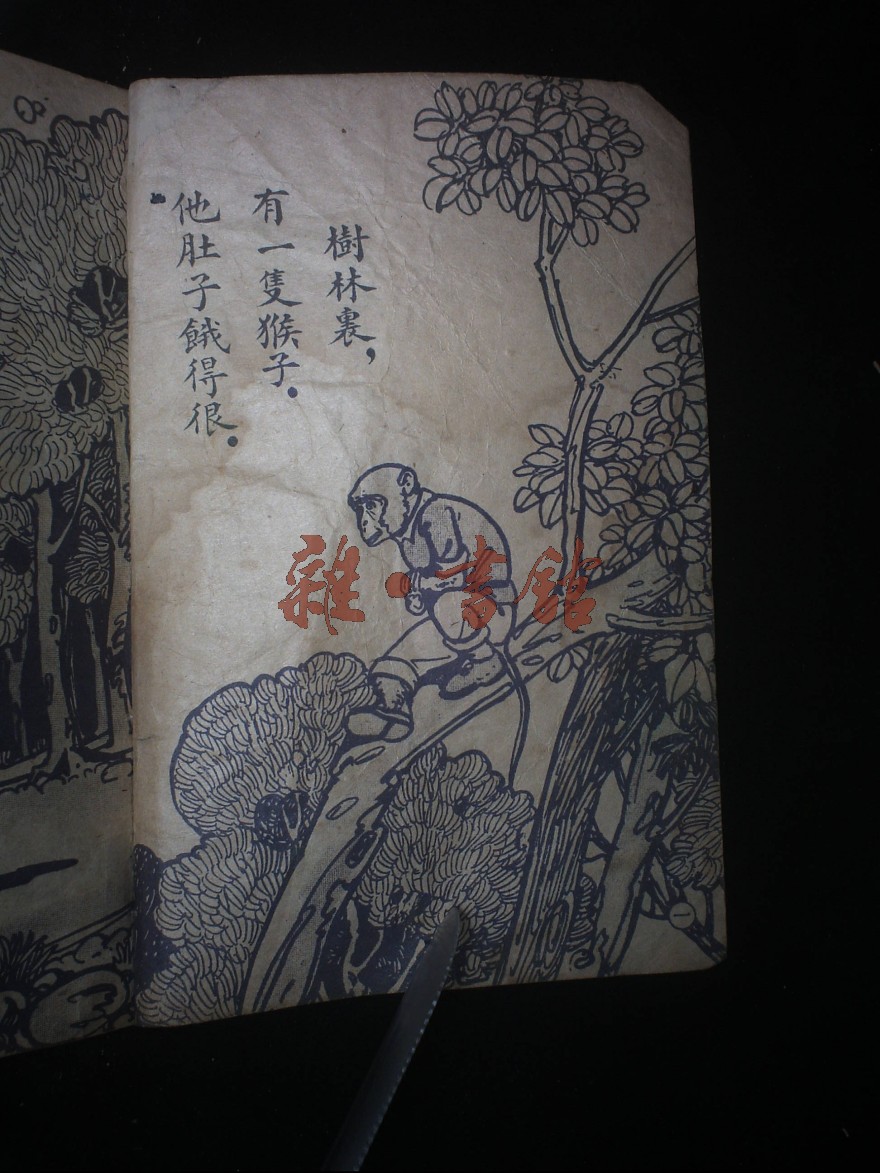 樹林裏，
有一隻猴子．
他肚子餓得很．
雜·書館
一